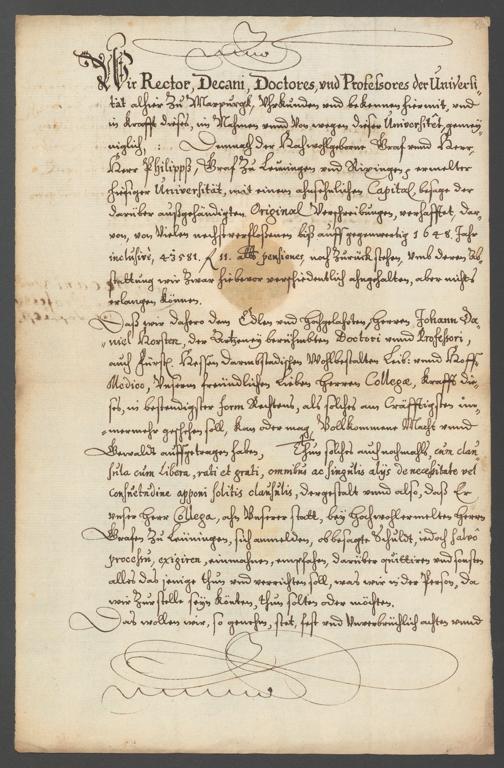 Wir Rector, Decani, Doctores, vnd Professores der Universi-
tät alhier zu Marpurgk, Vhrkunden vnd bekennen hiermit, vnd
in krafft dieses, in Nahmen vnnd von wegen dieser Universitet, gemey-
niglich, : Demnach der Hochwohlgeborne Graf vnnd Herr,
Herr Philipß, Graf zu Leiningen vnd Rixingen, ermelter
hiesiger Universität, mit einem ahnsehnlichen Capital, besage der
darüber außgehändigten Original Verschreibungen, verhafftet, dar-
von, von vielen nechstverfloßenen biß auff gegenwertig 1648. Jahr
inclusivè, 43581. f 11. alb. pensiones, noch zurück stehen, vmb deren Ab-
stattung wir zwar hiebevor verschiedentlich ahngehalten, aber nichts
erlangen können.
Daß wir dahero dem Edlen vnd Hochgelahrten, Herren, Johann Da-
niel Horsten, der Artzeney berühmbten Doctori vnnd Professori,
auch Fürstl. Hessen Darmbstadischen Wohlbestalten Leib- vnnd Hoff-
Medico, Vnserm freundlichen lieben Herren Collegæ, krafft die-
ses, in bestendigster form Rechtens, als solches am Cräfftigsten im-
mermehr geschehen soll, kan oder mag, Vollkommene Macht vnnd
Gewaldt auffgetragen haben, Thun solches auch nochmahls, cum clau-
sula cum libera, rati et grati, omnibus ac singulis alijs de necessitate vel
consuetudine apponi solitis clausulis, dergestalt vnnd also, daß Er
vnser Herr Collega, ahn Vnserer statt, bey Hochwohlermelten Herrn
Grafen zu Leiningen, sich anmelden, ob besagte Schuldt, iedoch salvo
processu, exigiren, einnehmen, empfahen, darüber quittiren vnd sonsten
alles das jenige thun vnd verrichten soll, was wir in der Person, da
wir zur stelle seyn könten, thun solten oder möchten.
Das wollen wir, so genehm, stet, fest vnd Vnverbrüchlich achten vnnd